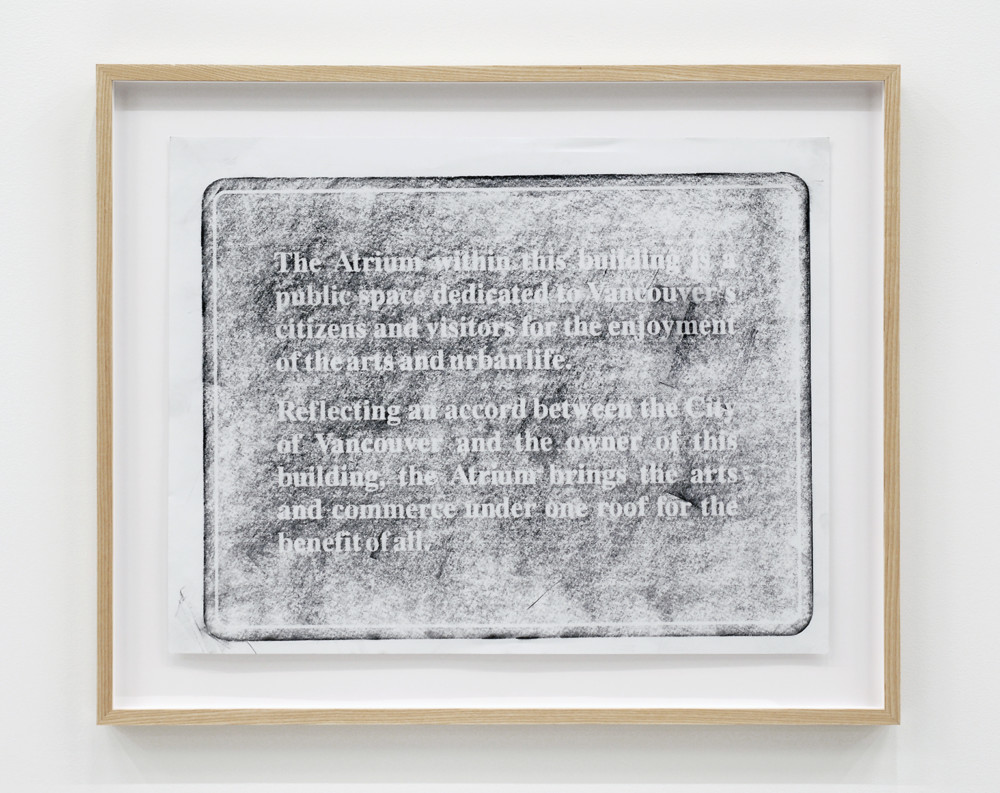 The Atrium within this building is a
public space dedicated to Vancouver's
citizens and visitors for the enjoyment
of the arts and urban life.
Reflecting an accord between the City
of Vancouver and the owner of this
building, the Atrium brings the arts
and commerce under one roof for the
benefit of all.